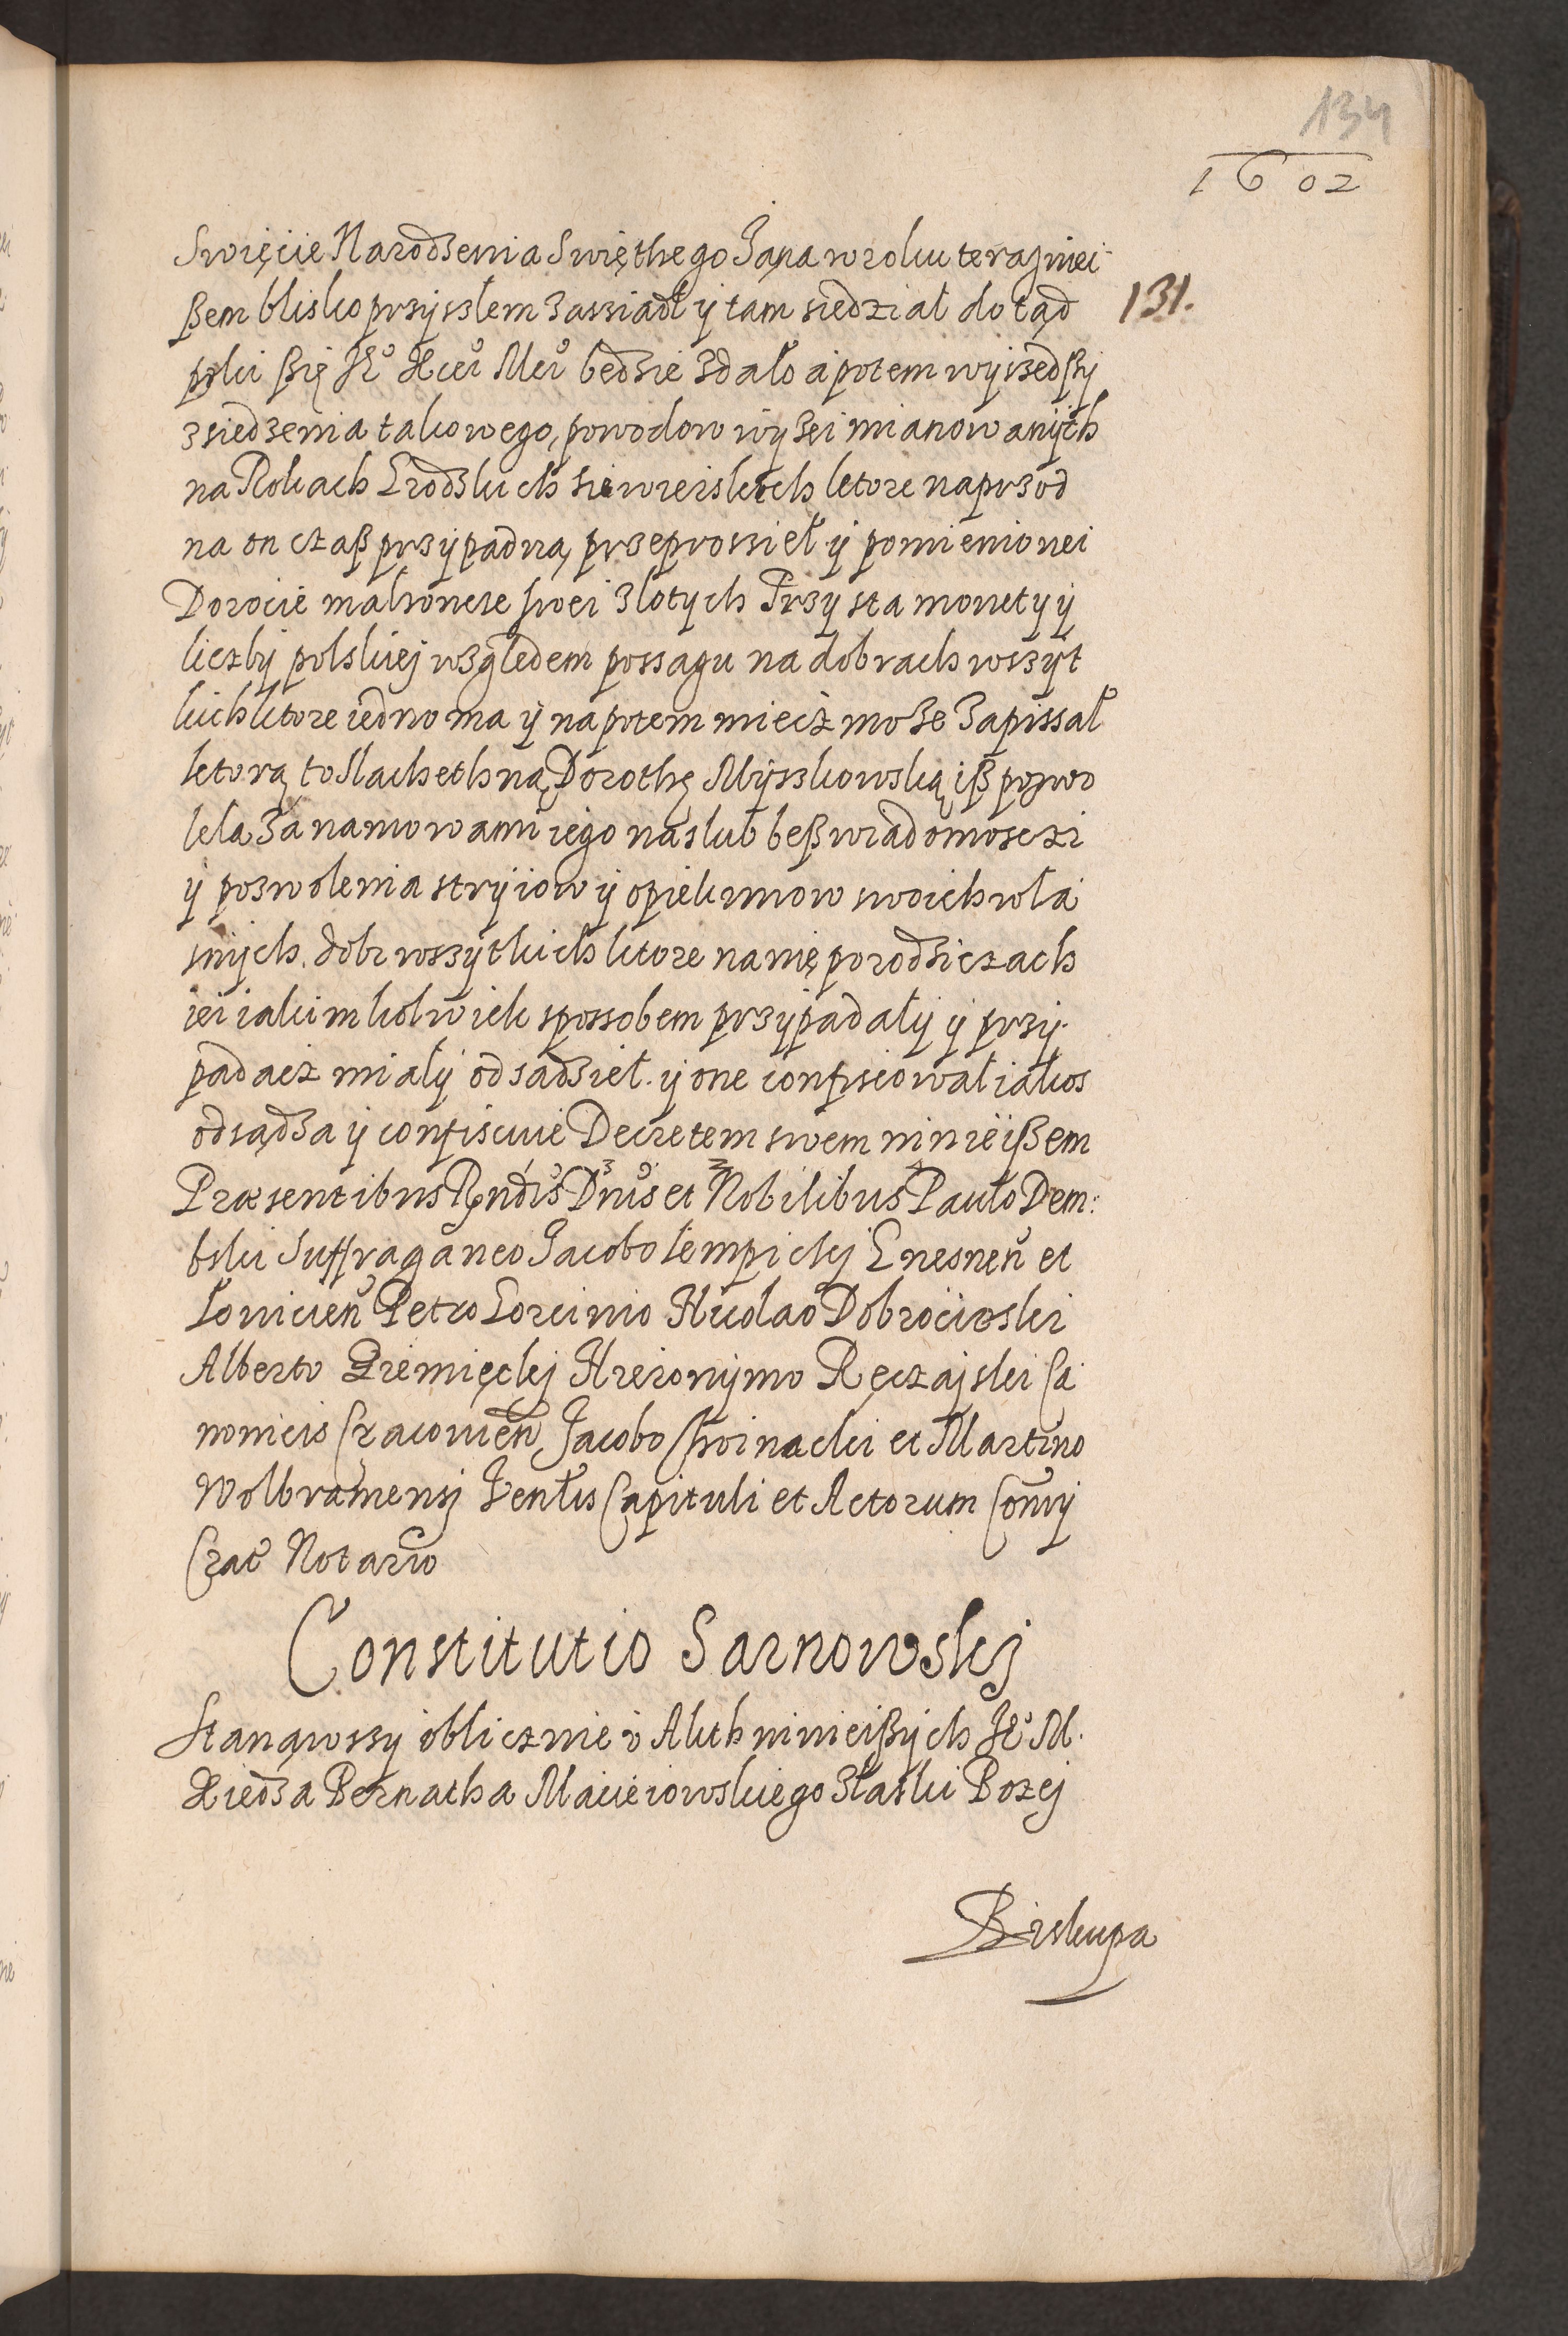 134
1602
131.
Swięcie Narodzenia Swięthego Jana w roku terazniei-
ßem blisko przyszłem zassiadł ÿ tam siedział dotąd
poki ßię Je° Xcei Mci będzie zdało a potem wÿszedßÿ
z siedzenia takowego, powodow wÿzei mianowanÿch
na Rokach Grodzkich Siewierskich ktore naprzod
na on czaß przÿpadną, przeprossieł ÿ pomienionei
Dorocie małzoncze swei złotych Trzÿ sta monety ÿ
liczbÿ polskiej względem possagu na dobrach wszÿt
kich ktore iedno ma ÿ napotem miecz może zapissał
ktorą to slachethną Dorothę Mÿszkowską iß pozwo
leła za namowami iego na slub beß wiadomosczi
ÿ pozwolenia strÿiow ÿ opiekunow swoich wła
snÿch. dobr wszÿtkich ktore na nię po rodziczach
iei iakimkolwiek spossobem przÿpadałÿ ÿ przÿ-
padacz miałÿ odsądzieł. ÿ one confiscował iakos
odsądza ÿ confiscuie Decretem swem ninieißem
Præsentibus Rndis Dnis et Nobilibus Paulo Dem:
bski Suffraganeo Jacobo Łempickj Gnesnen et
Lovicien Petro Gorcinio Nicolao Dobrocieski
Alberto Ziemięckj Hieronÿmo Ręczajski Ca
nonicis Cracovien Jacobo Choinacki et Martino
Wolbramensj Ventlis Capituli et Actorum Consÿ
Crac Notario
Constitutio Sarnowskj
Stanąwszy oblicznie v Akth ninieißÿch Je° M.
Xiedza Bernatha Macieiowskiego z łaski Bozej
Biskupa